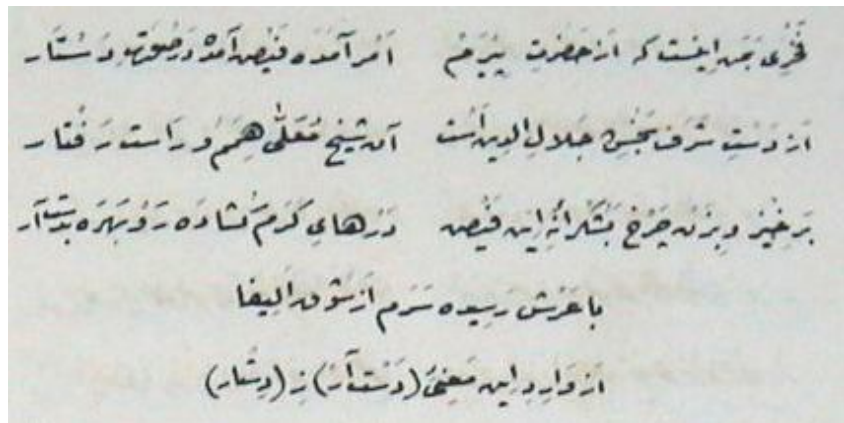 فخری بمن اینست که از حضرت پیرم امر آمده فیض آمده در صورت دستار
از دست شرف بخش جلال الدین است آن شیخ معلی همم و راست رفتار
برخیز و بزن چرخ بشکرانه این فیض درهای کرم گشاده رو بهره بدست آر
با عرش رسیده سرم از شوق الیفا
از وارد این معنی (دست آر) ز (دستار)